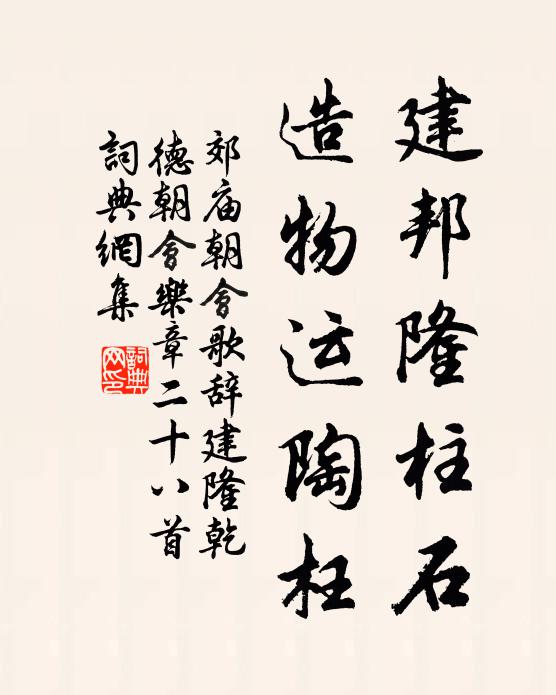 建邦隆柱石
造物运陶枉
郊庙朝会歌辞建隆乾
德朝会樂章二十八首
詞典網集
詞典网印